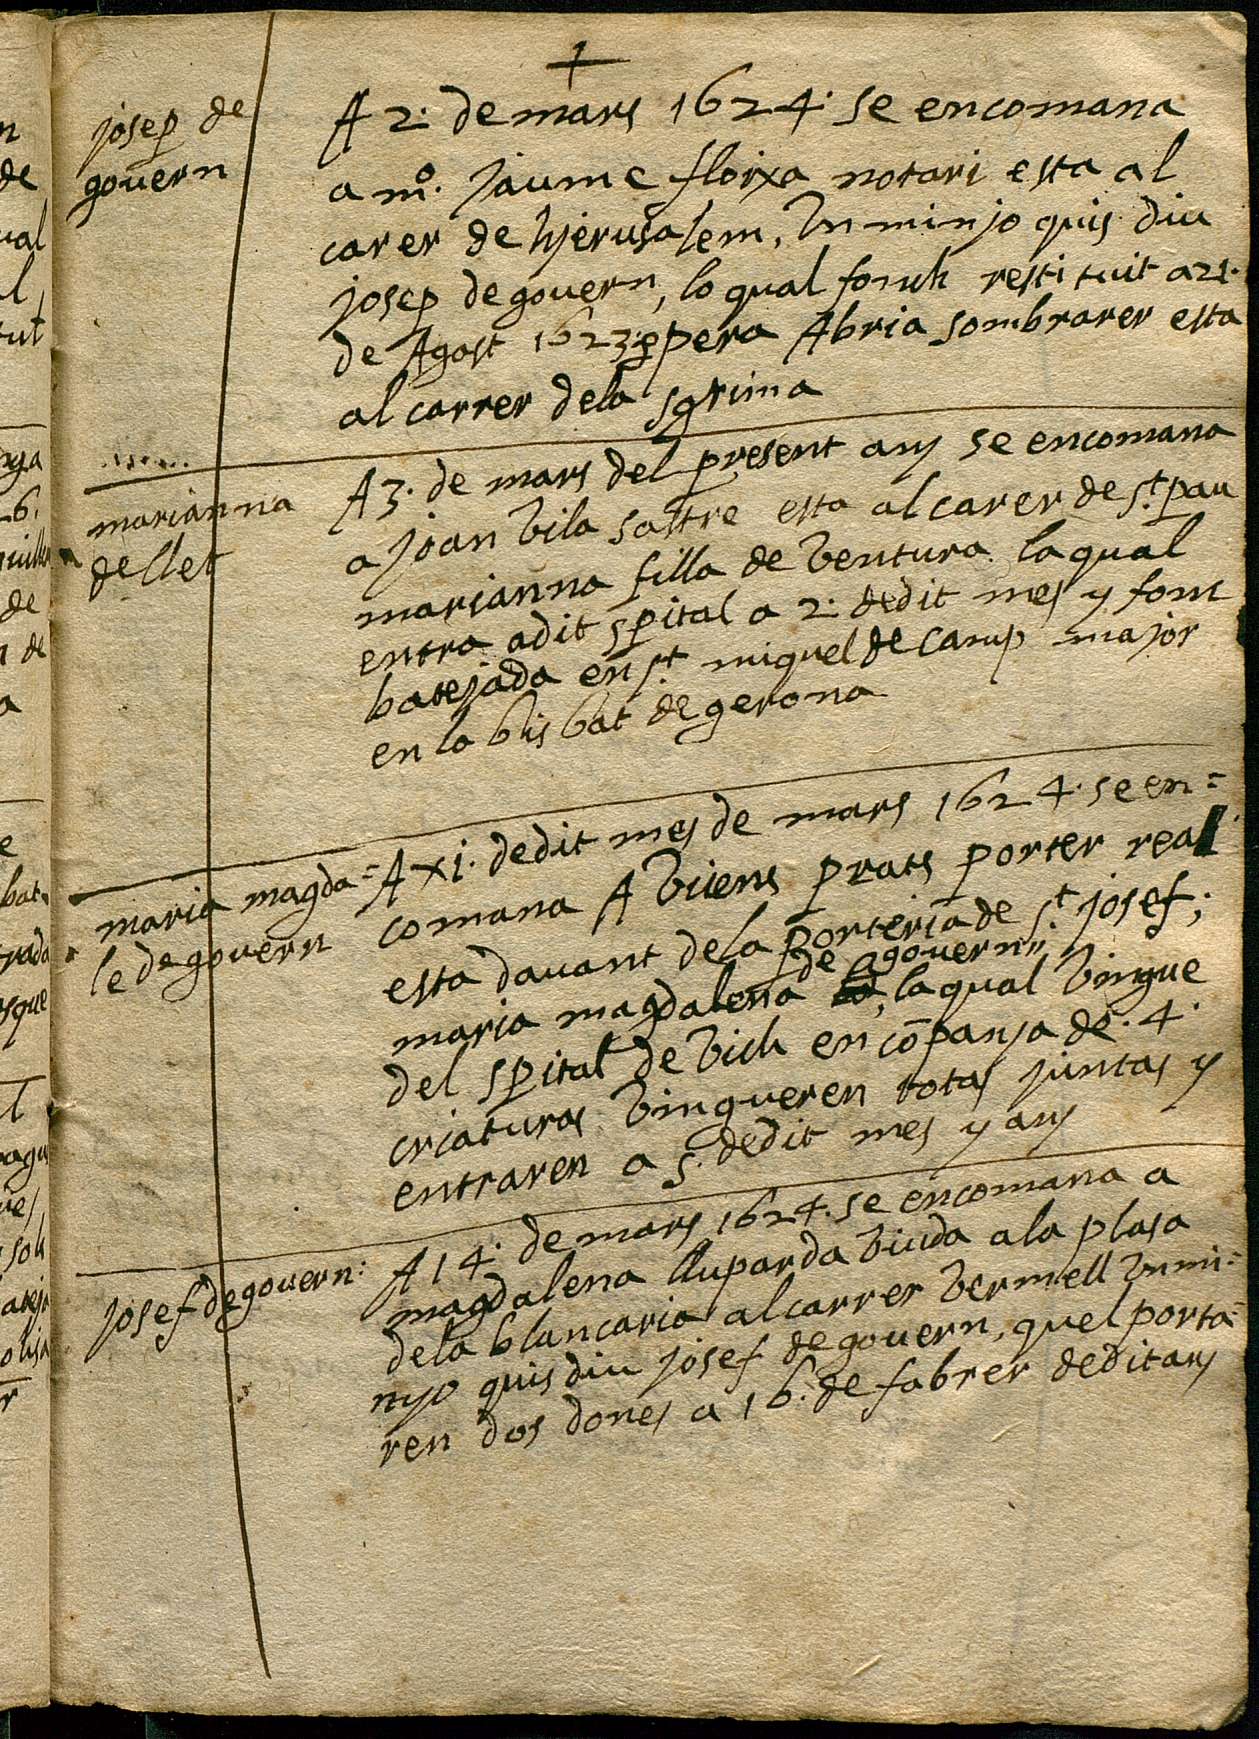 +
josep de
govern
A 2. de mars 1624. se encomana
a mo. jaume floixa notari esta al
carer de hjerusalem, Un minjo quis diu
josep de govern, lo qual fonch restituit a 21.
de Agost 1623 pera Abria sombrarer esta
al carrer dela sgrima
marianna
de llet
A 3. de mars del present any se encomana
a joan Vila sastre esta al carer de st. pau
marianna filla de Ventura la qual
entra adit spital a 2. dedit mes y fonc
batejada en st. miquel de Camp major
en lo bisbat de gerona
maria magda=
le de govern
A xi. dedit mes de mars 1624. se en=
comana A Vicens prats porter real
esta davant dela porteria de st. josef;
maria magdalena de govern, la qual Vingue
del spital de Vich en cōpanja de .4.
criaturas Vingueren totas juntas y
entraren a 5. dedit mes y any
josef de govern:
A 14. de mars 1624. se encomana a
magdalena lluparda Viuda a la plasa
dela blancaria al carrer Vermell Un mi=
nyo quis diu josef de govern, quel porta=
ren dos dones a 16. de fabrer dedit any